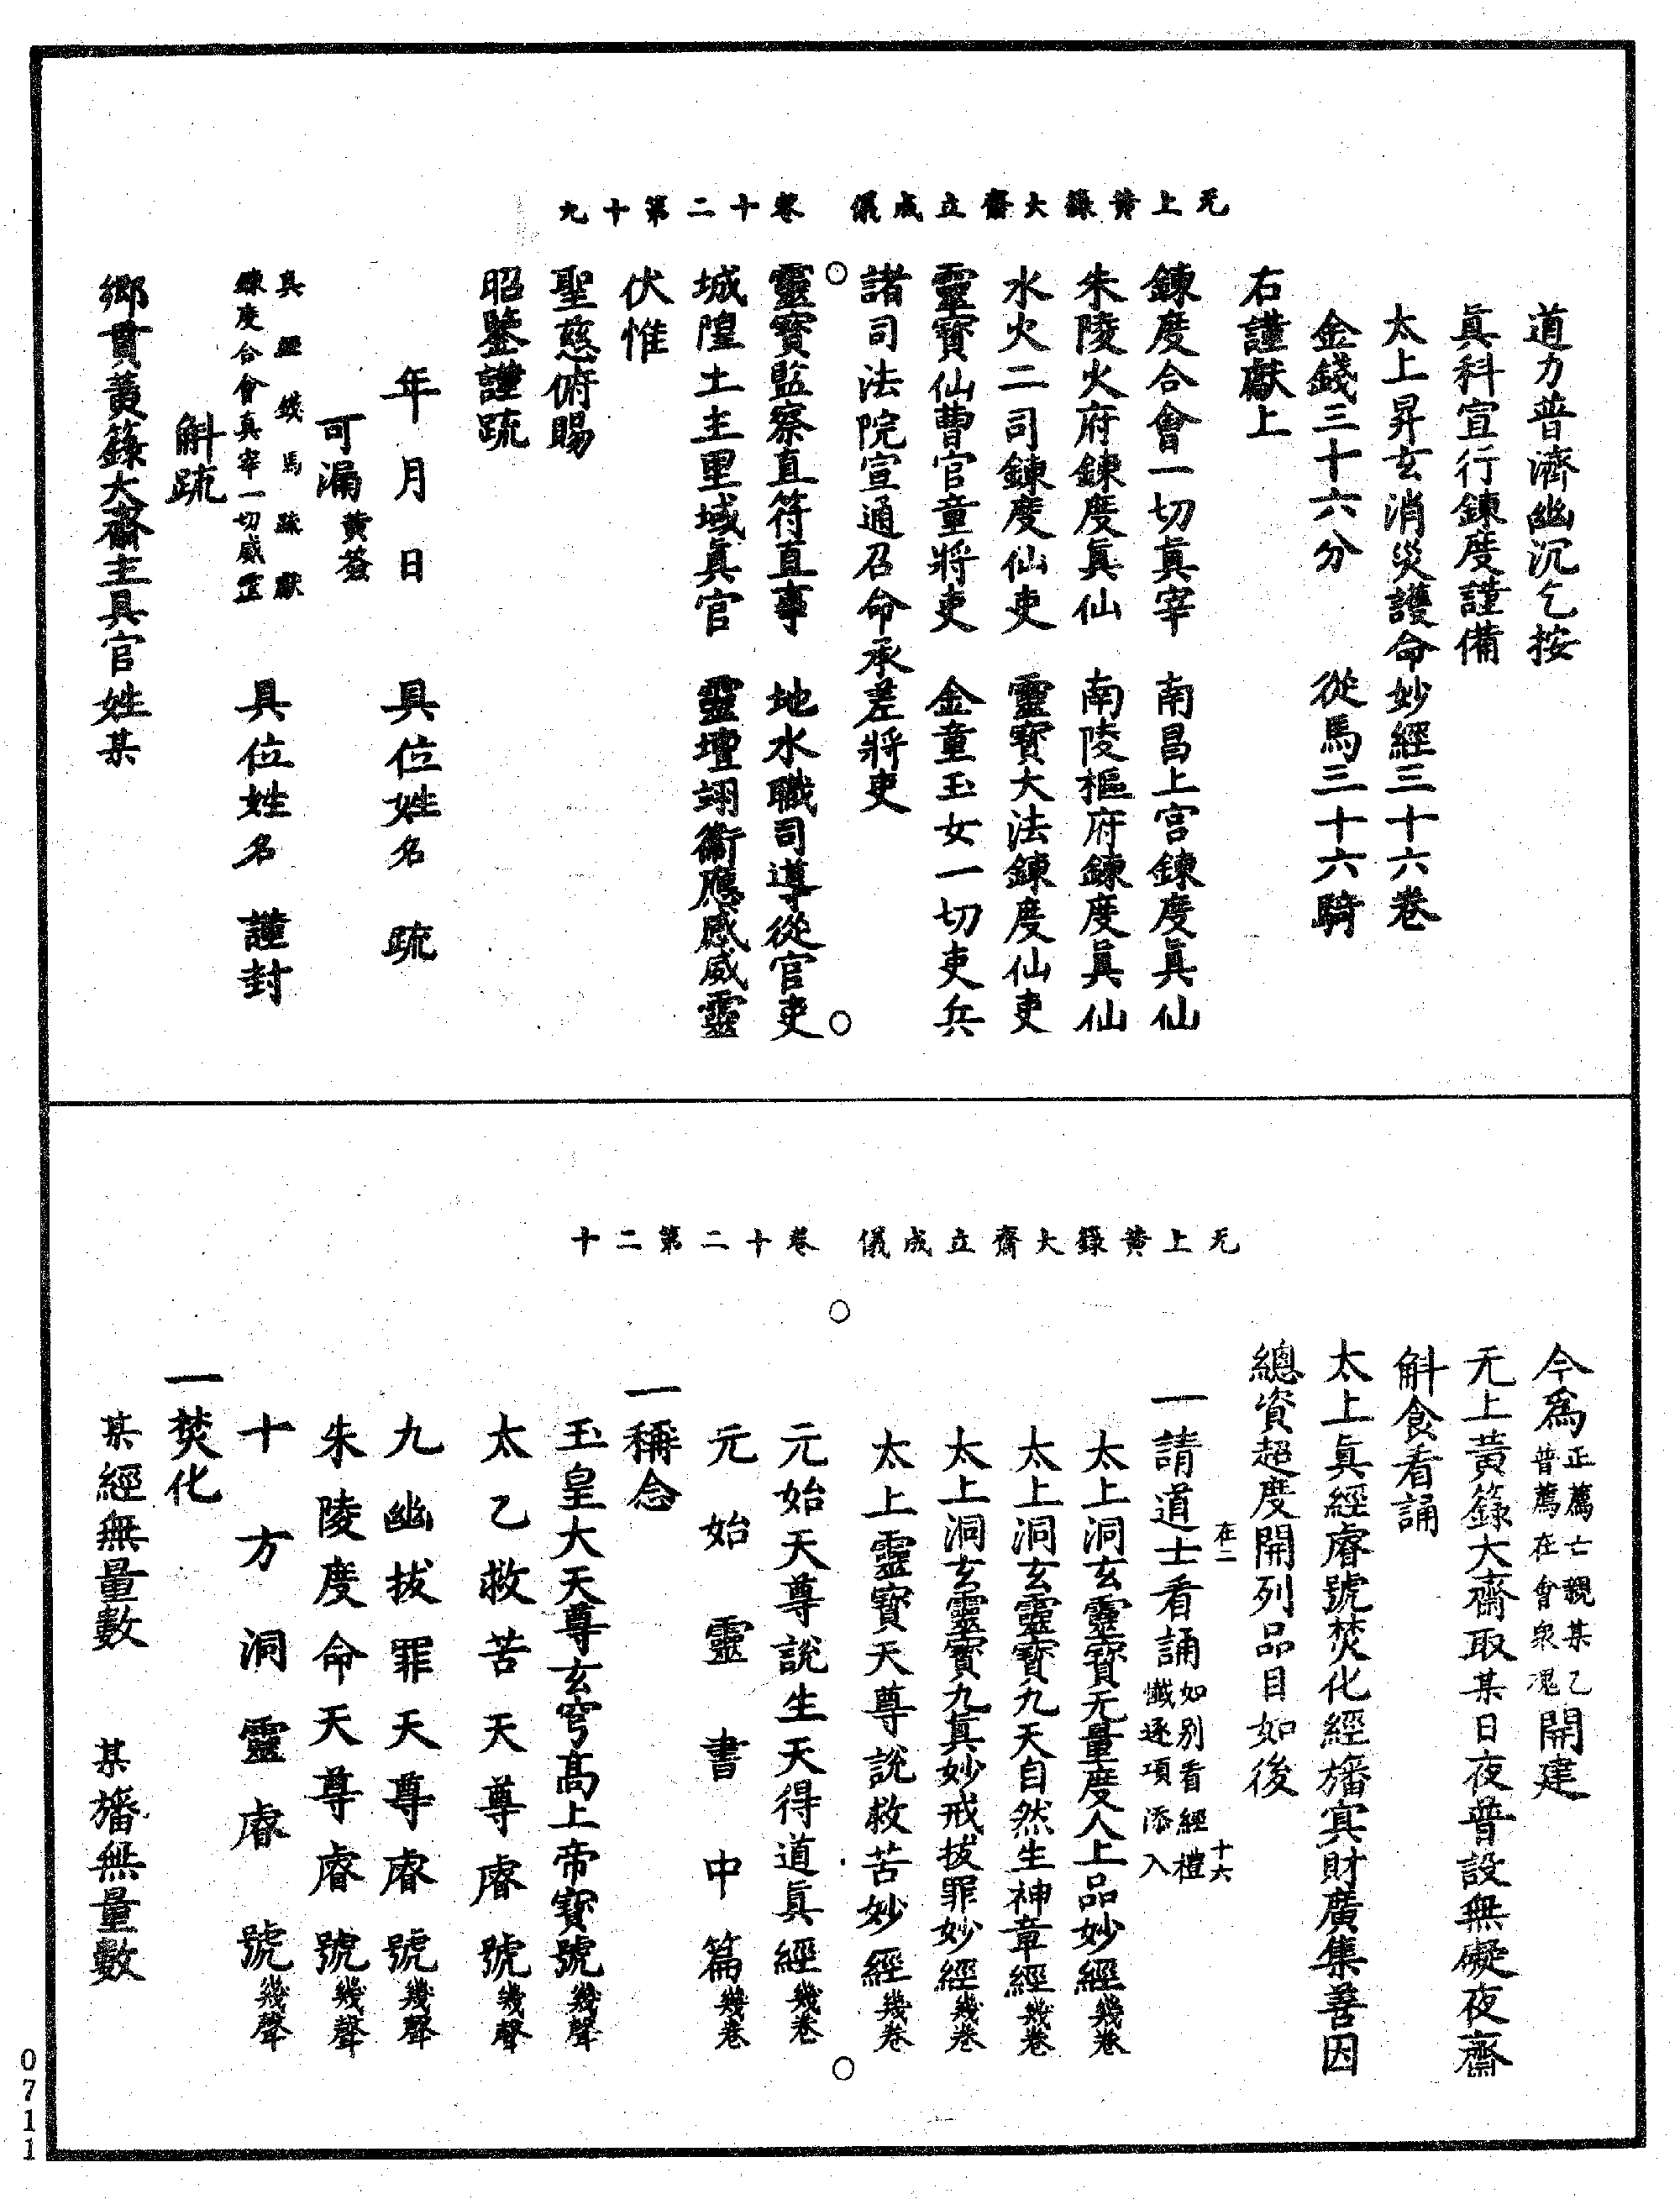 无上黄籙大齋立成儀　卷十二第十九
道力普濟幽沉乞按
眞科宣行鍊度謹備
太上昇玄消災護命妙經三十六卷
金錢三十六分　從馬三十六騎
右謹獻上
鍊度合會一切眞宰　南昌上宮鍊度眞仙
朱陵火府鍊度眞仙　南陵樞府鍊度眞仙
水火二司鍊度仙吏　靈寶大法鍊度仙吏
靈寶仙曹官童將吏　金童玉女一切吏兵
諸司法院宣通召命承差將吏
靈寶監察直符直事　地水職司導從官吏
城隍土主里域眞官　靈壇翊衛應感威靈
伏惟
聖慈俯賜
昭鑒謹疏
年月日　具位姓名　疏
可漏黃簽
真經錢馬疏獻
鍊度合會真宰一切威靈　具位姓名　謹封
斛疏
鄉貫黃籙大齋主具官姓某
无上黄籙大齋立成儀　卷十二第二十
今爲正薦亡親某乙普薦在會衆魂開建
无上黃籙大齋取某日夜普設無礙夜齋
斛食看誦
太上眞經睿號焚化經旛㝠財廣集善因
總資超度開列品目如後
在二
十六
一請道士看誦如别看經禮懺逐項添入
太上洞玄靈寶无量度人上品妙經幾卷
太上洞玄靈寶九天自然生神章經幾卷
太上洞玄靈寶九真妙戒拔罪妙經幾卷
太上靈寶天尊說救苦妙經幾卷
元始天尊說生天得道眞經幾卷
元始靈書中篇幾卷
一稱念
玉皇大天尊玄穹高上帝寶號幾聲
太乙救苦天尊睿號幾聲
九幽拔罪天尊睿號幾聲
朱陵度命天尊睿號幾聲
十方洞靈睿號幾聲
一焚化
某經無量數　某旛無量數
0711